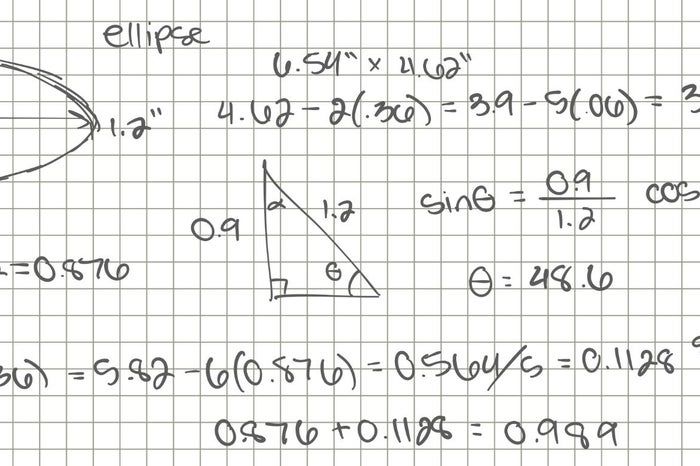 ellipse
6.54" × 4.62"
1.2"
4.62 - 2(.36) = 3.9 - 5(.06) = 3
α
1.2
0.9
θ
sinθ = 0.9/1.2
cos
= 0.876
θ = 48.6
36) = 5.82 - 6(0.876) = 0.564/5 = 0.1128
0.876 + 0.1128 = 0.989